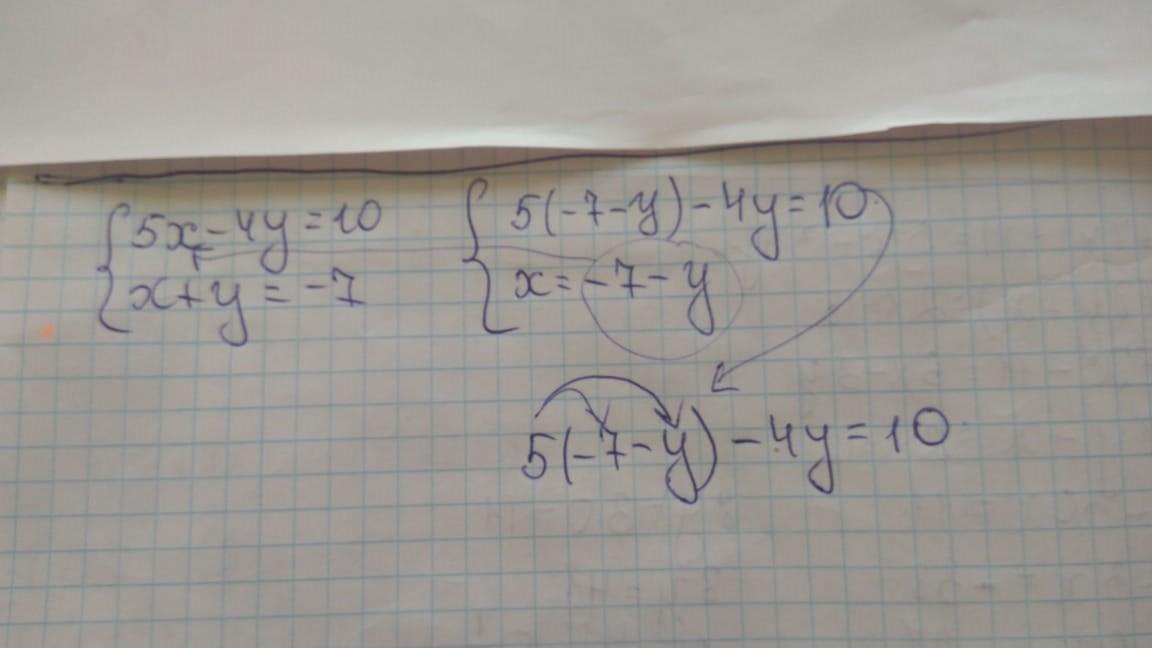 5x-4y=10
x+y=-7
5(-7-y)-4y=10
x=-7-y
5(-7-y)-4y=10